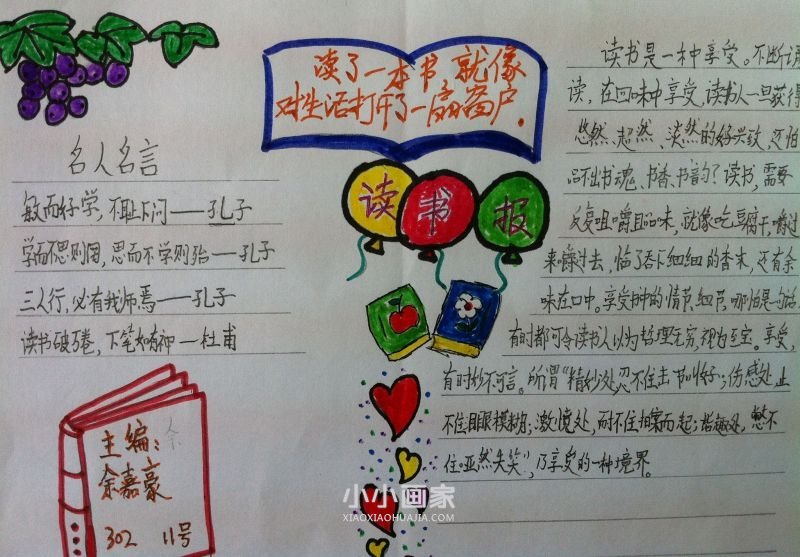 读了一本书，就像
对生活打开了一扇窗户.
名人名言
敏而好学，不耻下问——孔子
学而不思则罔，思而不学则殆——孔子
三人行，必有我师焉——孔子
读书破万卷，下笔如有神—杜甫
读 书 报
主编：余
余嘉豪
302 11号
读书是一种享受。不断诵
读，在回味中享受，读书人一旦获得
悠然、超然、淡然的好兴致，还怕
品不出书魂、书香、书韵？读书，需要
反复咀嚼且品味，就像吃豆腐干，嚼过
来嚼过去，临了吞下细细的香末，还有余
味在口中。享受书中的情节、细节，哪怕是一句话
有时都可令读书人以为哲理无穷，视为至宝。享受，
有时妙不可言。所谓“精妙处，忍不住击节叫好”；伤感处，止
不住泪眼模糊；激愤处，耐不住拍案而起；诙趣处，憋不
住哑然失笑”，乃享受的一种境界。
小小画家
XIAOXIAOHUAJIA.COM